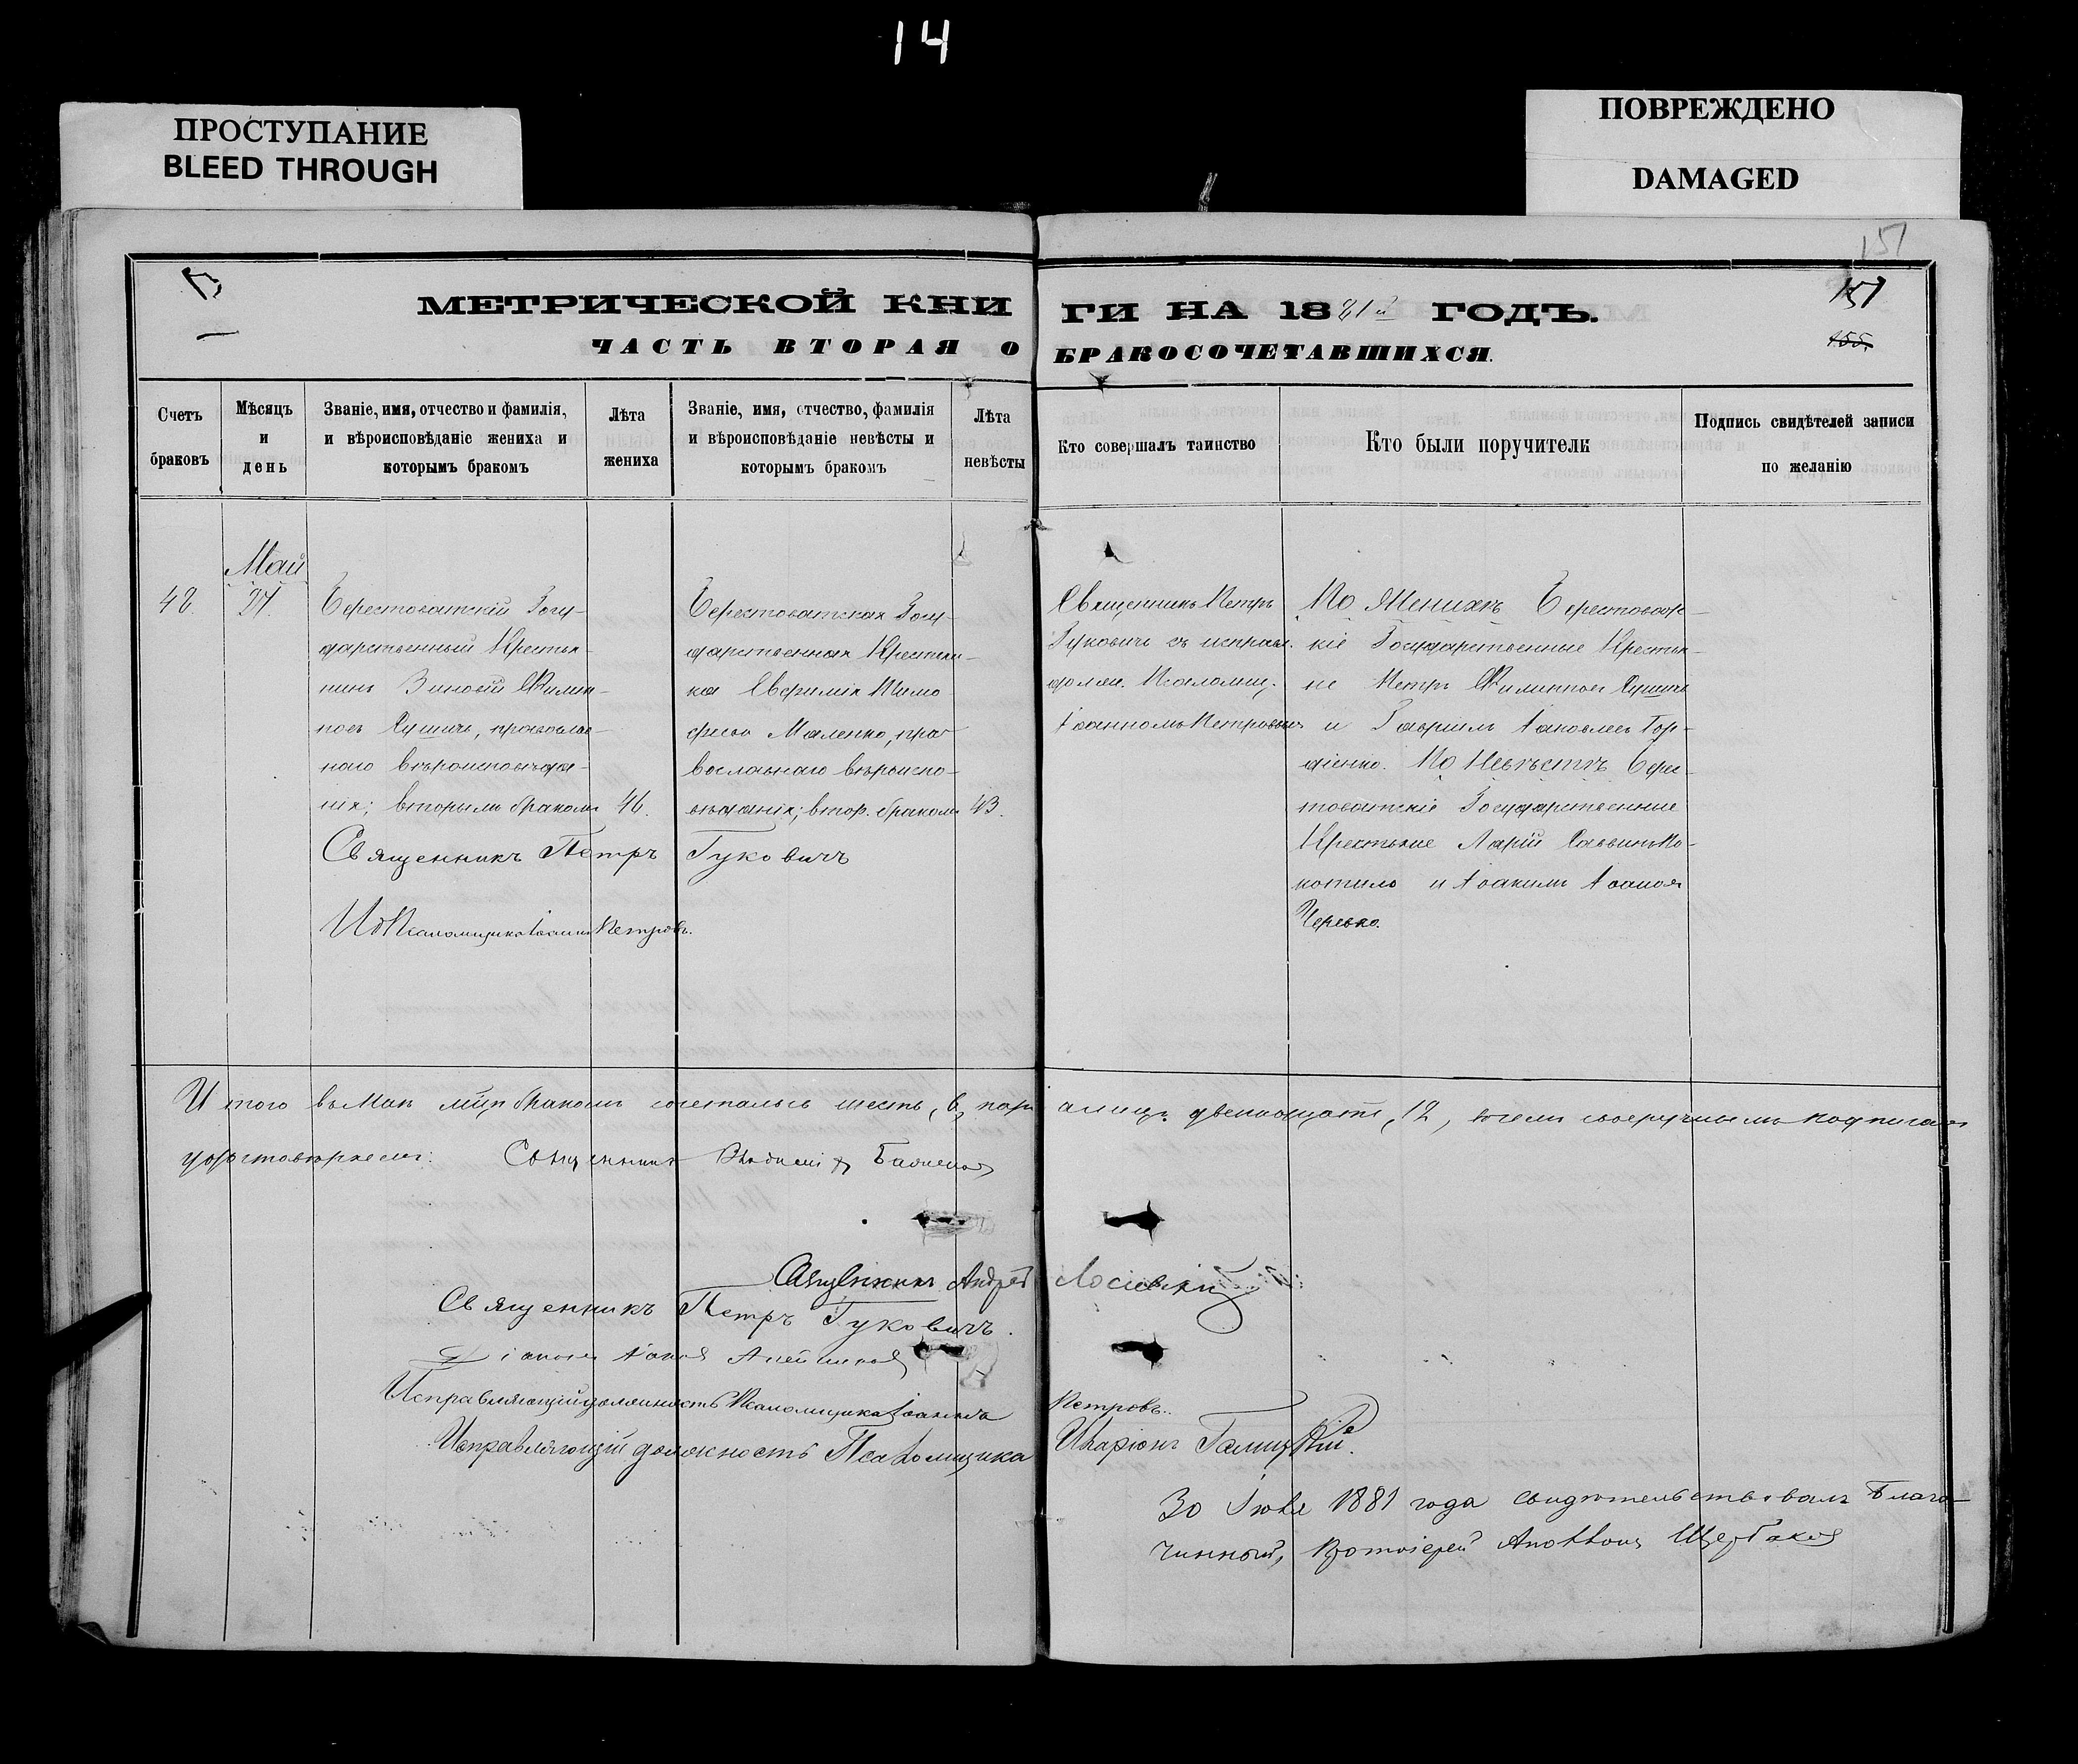 14
ПРОСТУПАНИЕ
BLEED THROUGH
ПОВРЕЖДЕНО
DAMAGED
151
151
155.
МЕТРИЧЕСКОЙ КНИГИ НА 1881й ГОДЪ.
ЧАСТЬ ВТОРАЯ О БРАКОСОЧЕТАВШИХСЯ.
Счетъ браковъ
Мѣсяцъ и день
Званіе, имя, отчество и фамилія, и вѣроисповѣданіе жениха и которымъ бракомъ
Лѣта жениха
Званіе, имя, отчество, фамилія и вѣроисповѣданіе невѣсты и которымъ бракомъ
Лѣта невѣсты
Кто совершалъ таинство
Кто были поручители
Подпись свидѣтелей записи по желанію
Май
42.
Берестоватскій Госу-
дарственный Крестья-
нинъ Зиновій Филип-
повъ Сушичъ, православ-
наго вѣроисповѣда-
нія; вторымъ бракомъ
46.
Берестоватская Госу-
дарственная Крестьян-
ка Евфимія Тимо
феева Маленко, пра-
вославнаго вѣроиспо-
вѣданія; втор. бракомъ
43.
Священникъ Петръ
Гуковичъ съ исправ.
должн. Псаломщ.
Іоанномъ Петровымъ
По Женихѣ Берестоват-
кіе Государственные Крестья-
не Петръ Филипповъ Сушичъ
и Гавріилъ Іаковлевъ Гор-
діенко. По Невѣстѣ Берес-
товатскіе Государственные
Крестьяне Ларій Саввинъ Ко-
котило и Іоакимъ Іоанновъ
Черевко.
Священникъ Петръ Гуковичъ
Псаломщика Іоаннъ Петровъ.
Итого въ Маѣ м-цѣ бракомъ сочеталось шесть, 6, паръ а лицъ двенадцать, 12, въ чемъ своеручнымъ подписомъ
удостовѣряемъ: Священникъ
Священникъ Андрей Лосіевскій
Священникъ Петръ Гуковичъ.
Діаконъ
Исправляющій должность Псаломщика Іоаннъ Петровъ.
Исправляющій должность Псаломщика Иларіонъ
30 Іюля 1881 года свидѣтельствовалъ Благо-
чинный, Протоіерей Аполлонъ Щербаковъ